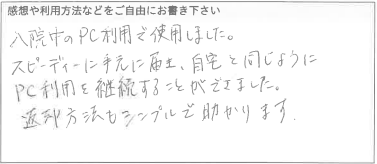 感想や利用方法などをご自由にお書き下さい
入院中のPC利用で使用しました。
スピーディーに手元に届き、自宅と同じように
PC利用を継続することができました。
返却方法もシンプルで助かります.